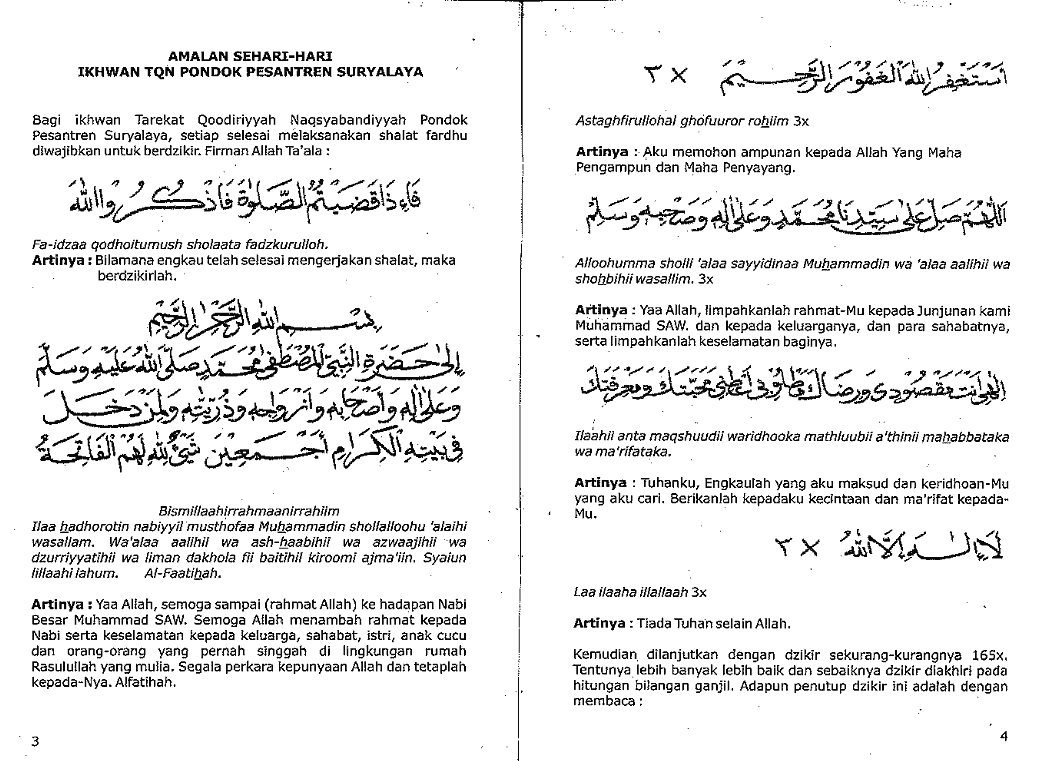 AMALAN SEHARI-HARI
IKHWAN TQN PONDOK PESANTREN SURYALAYA
Bagi ikhwan Tarekat Qoodiriyyah Naqsyabandiyyah Pondok
Pesantren Suryalaya, setiap selesai melaksanakan shalat fardhu
diwajibkan untuk berdzikir. Firman Allah Ta'ala :
فَاِذَا قَضَيْتُمُ الصَّلٰوةَ فَاذْكُرُوا اللّٰهَ
Fa-idzaa qodhoitumush sholaata fadzkurulloh.
Artinya : Bilamana engkau telah selesai mengerjakan shalat, maka
berdzikirlah.
بِسْمِ اللّٰهِ الرَّحْمٰنِ الرَّحِيْمِ
اِلٰى حَضْرَةِ النَّبِيِّ الْمُصْطَفٰى مُحَمَّدٍ صَلَّى اللّٰهُ عَلَيْهِ وَسَلَّمَ
وَعَلٰى اٰلِهِ وَاَصْحَابِهِ وَاَزْوَاجِهِ وَذُرِّيَّتِهِ وَلِمَنْ دَخَلَ
فِى بَيْتِهِ الْكِرَامِ اَجْمَعِيْنَ شَيْءٌ لِلّٰهِ لَهُمُ الْفَاتِحَةُ
Bismillaahirrahmaanirrahiim
Ilaa hadhorotin nabiyyil musthofaa Muhammadin shollalloohu 'alaihi
wasallam. Wa'alaa aalihii wa ash-haabihii wa azwaajihii wa
dzurriyyatihii wa liman dakhola fii baitihil kiroomi ajma'iin. Syaiun
lillaahi lahum. Al-Faatihah.
Artinya : Yaa Allah, semoga sampai (rahmat Allah) ke hadapan Nabi
Besar Muhammad SAW. Semoga Allah menambah rahmat kepada
Nabi serta keselamatan kepada keluarga, sahabat, istri, anak cucu
dan orang-orang yang pernah singgah di lingkungan rumah
Rasulullah yang mulia. Segala perkara kepunyaan Allah dan tetaplah
kepada-Nya. Alfatihah.
3
اَسْتَغْفِرُ اللّٰهَ الْغَفُوْرَ الرَّحِيْمَ × ٣
Astaghfirullohal ghofuuror rohiim 3x
Artinya : Aku memohon ampunan kepada Allah Yang Maha
Pengampun dan Maha Penyayang.
اَللّٰهُمَّ صَلِّ عَلٰى سَيِّدِنَا مُحَمَّدٍ وَعَلٰى اٰلِهِ وَصَحْبِهِ وَسَلِّمْ
Alloohumma sholli 'alaa sayyidinaa Muhammadin wa 'alaa aalihii wa
shohbihii wasallim. 3x
Artinya : Yaa Allah, limpahkanlah rahmat-Mu kepada Junjunan kami
Muhammad SAW. dan kepada keluarganya, dan para sahabatnya,
serta limpahkanlah keselamatan baginya.
اِلٰهِيْ اَنْتَ مَقْصُوْدِيْ وَرِضَاكَ مَطْلُوْبِيْ اَعْطِنِيْ مَحَبَّتَكَ وَمَعْرِفَتَكَ
Ilaahii anta maqshuudii waridhooka mathluubii a'thinii mahabbataka
wa ma'rifataka.
Artinya : Tuhanku, Engkaulah yang aku maksud dan keridhoan-Mu
yang aku cari. Berikanlah kepadaku kecintaan dan ma'rifat kepada-
Mu.
لَا اِلٰهَ اِلَّا اللّٰهُ × ٣
Laa ilaaha illallaah 3x
Artinya : Tiada Tuhan selain Allah.
Kemudian dilanjutkan dengan dzikir sekurang-kurangnya 165x.
Tentunya lebih banyak lebih baik dan sebaiknya dzikir diakhiri pada
hitungan bilangan ganjil. Adapun penutup dzikir ini adalah dengan
membaca :
4